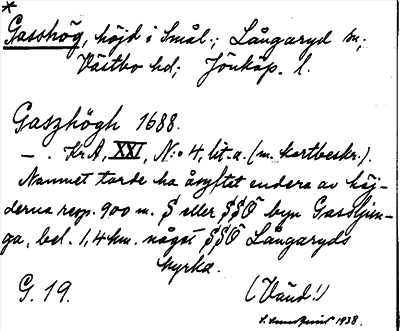 *
Gasshög, höjd i Smål.; Långaryd sn;
Västbo hd; Jönköp. l.
Gaszhögh 1688.
— . Kr.A, XXI, N:o 4, lit. a. (m. kartbeskr.).
Namnet torde ha åsyftat endera av höj-
derna resp. 900 m. S eller SSÖ byn Gassljun-
ga, bel. 1,4 km. något SSÖ Långaryds
kyrka.
G. 19. (Vänd!)
1938.